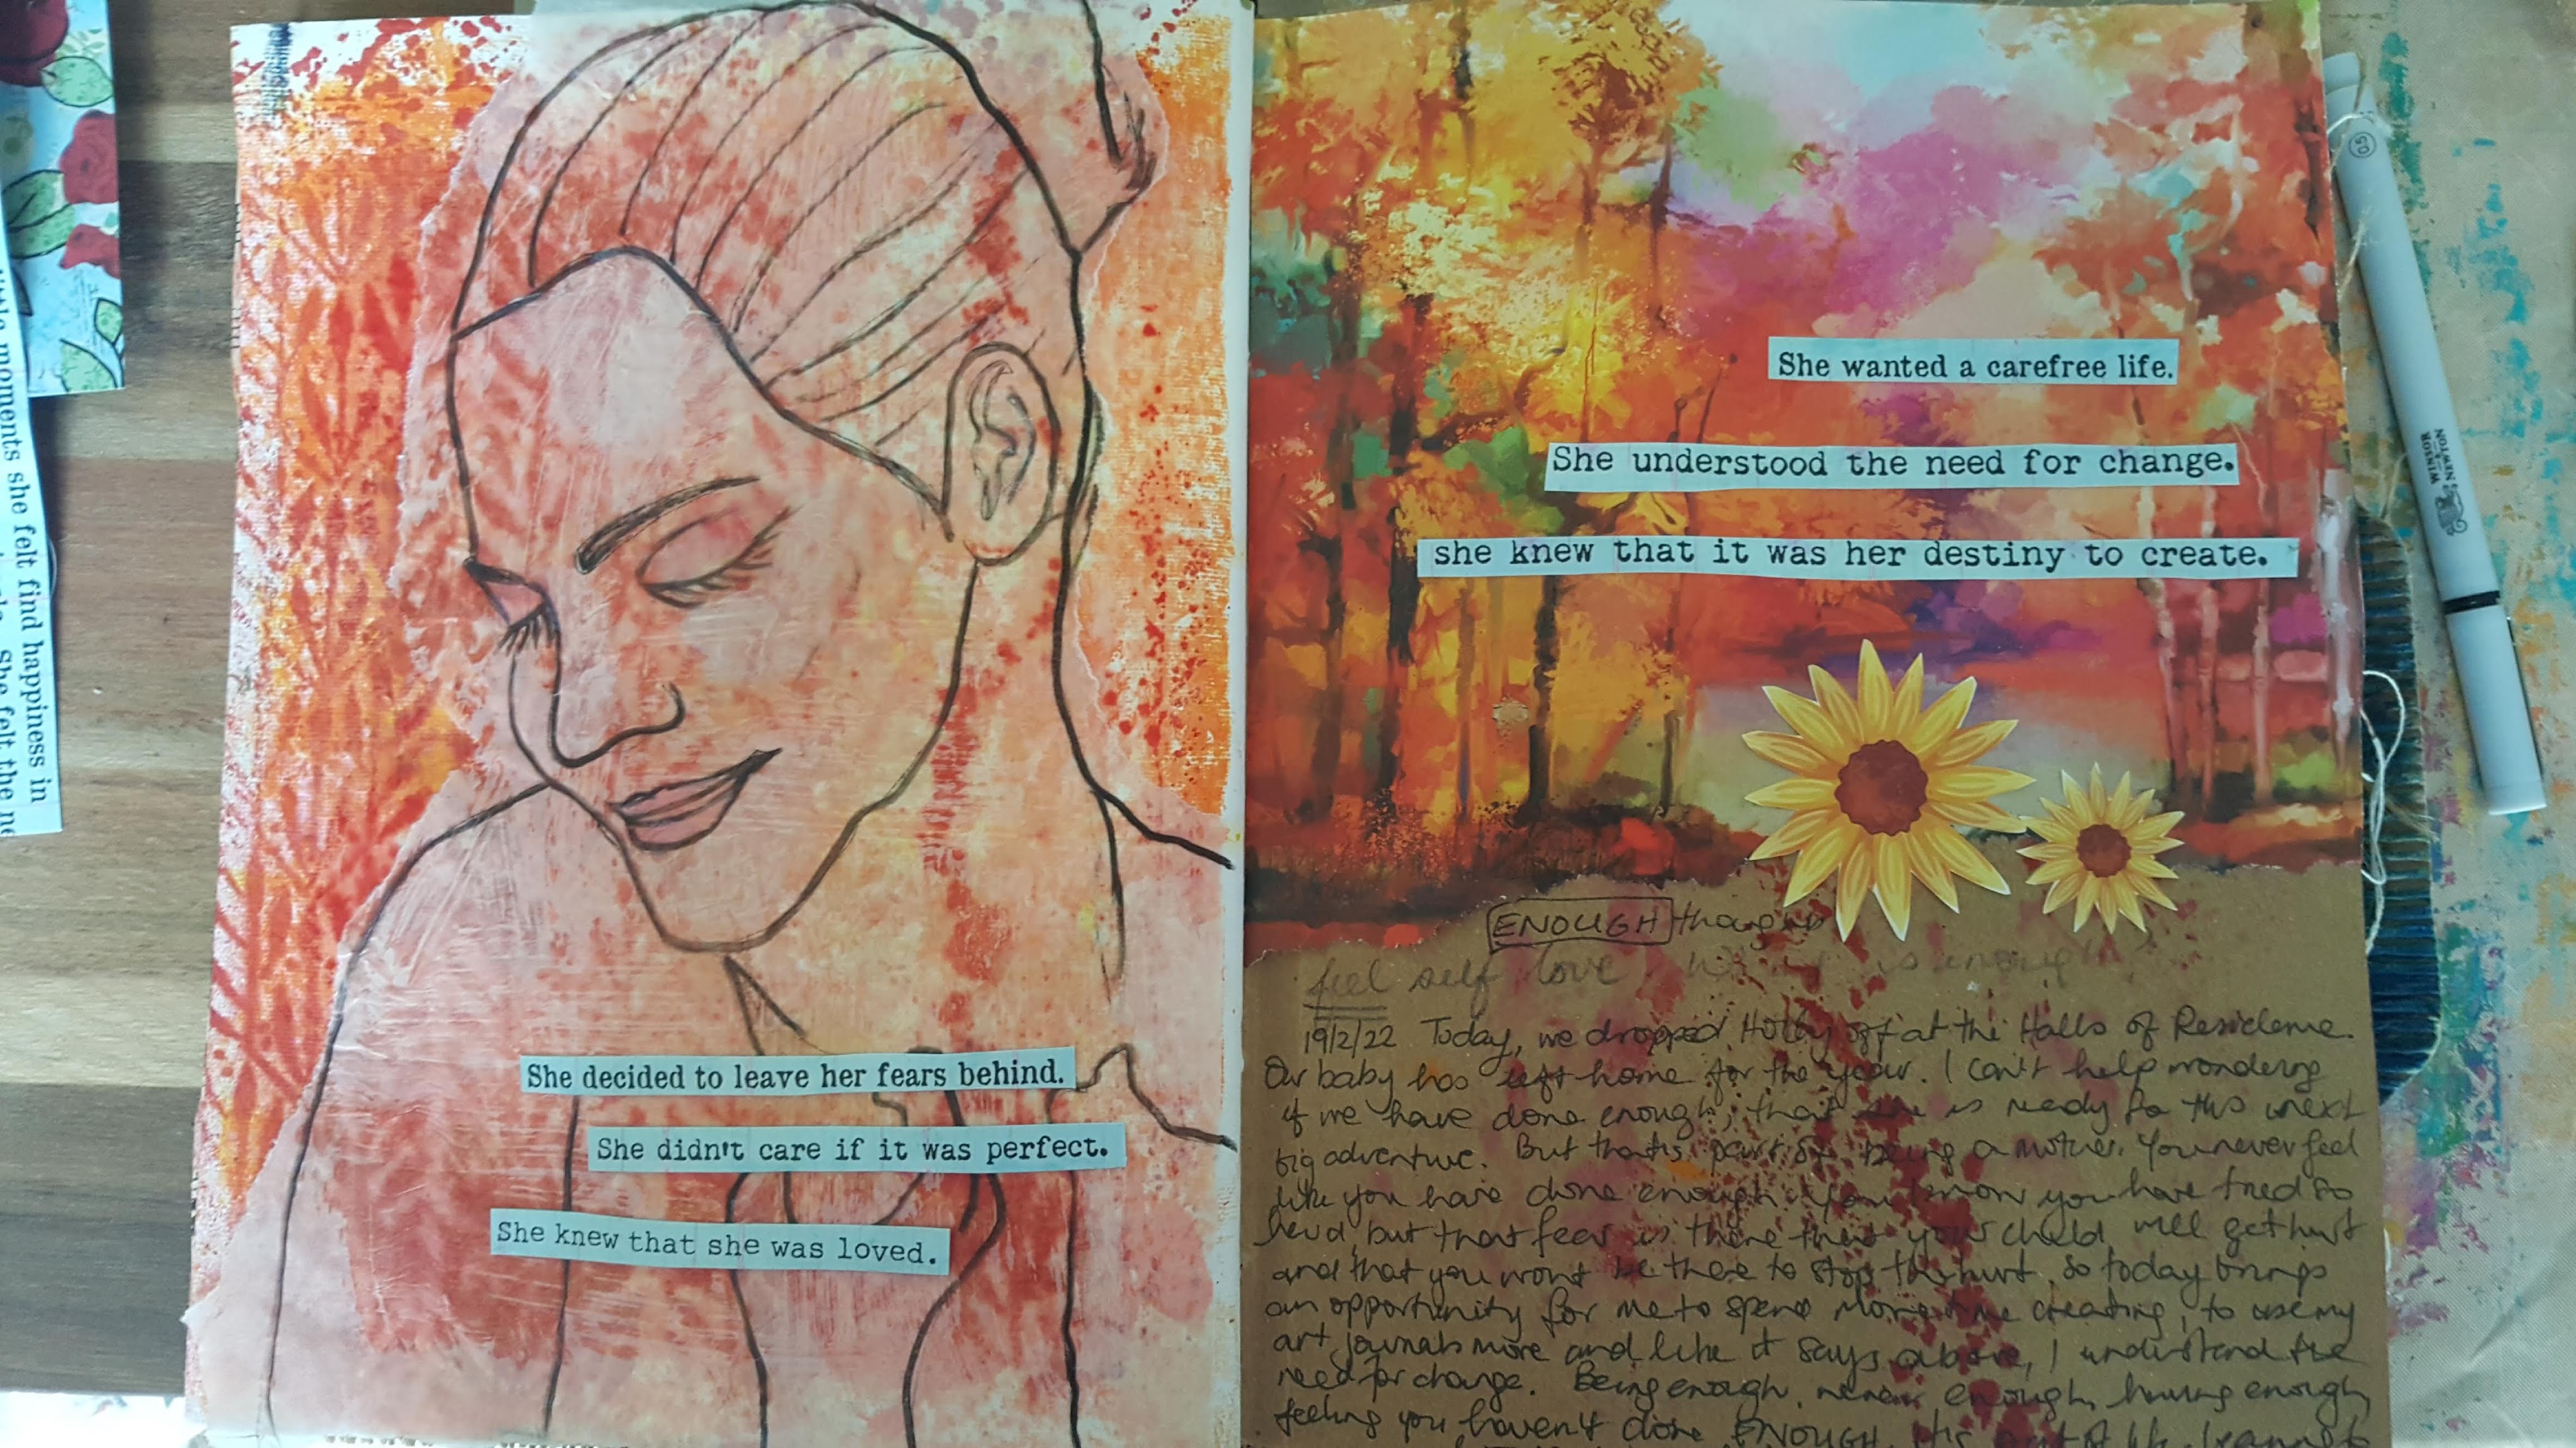 little moments she felt find happiness in
She felt the ne
She decided to leave her fears behind.
She didn't care if it was perfect.
She knew that she was loved.
She wanted a carefree life.
She understood the need for change.
she knew that it was her destiny to create.
0.5
WINSOR & NEWTON
ENOUGH thoughts
feel self love is enough
19/2/22 Today, we dropped Holly off at the Halls of Residence.
Our baby has left home for the year. I can't help wondering
if we have done enough, that she is ready for this next
big adventure. But that is part of being a mother. You never feel
like you have done enough. You know you have tried so
hard, but that fear is there that your child will get hurt
and that you wont be there to stop the hurt. So today brings
an opportunity for me to spend more time creating, to use my
art journals more and like it says above, I understand the
need for change. Being enough, never enough, having enough
feeling you haven't done ENOUGH. Its part of life.